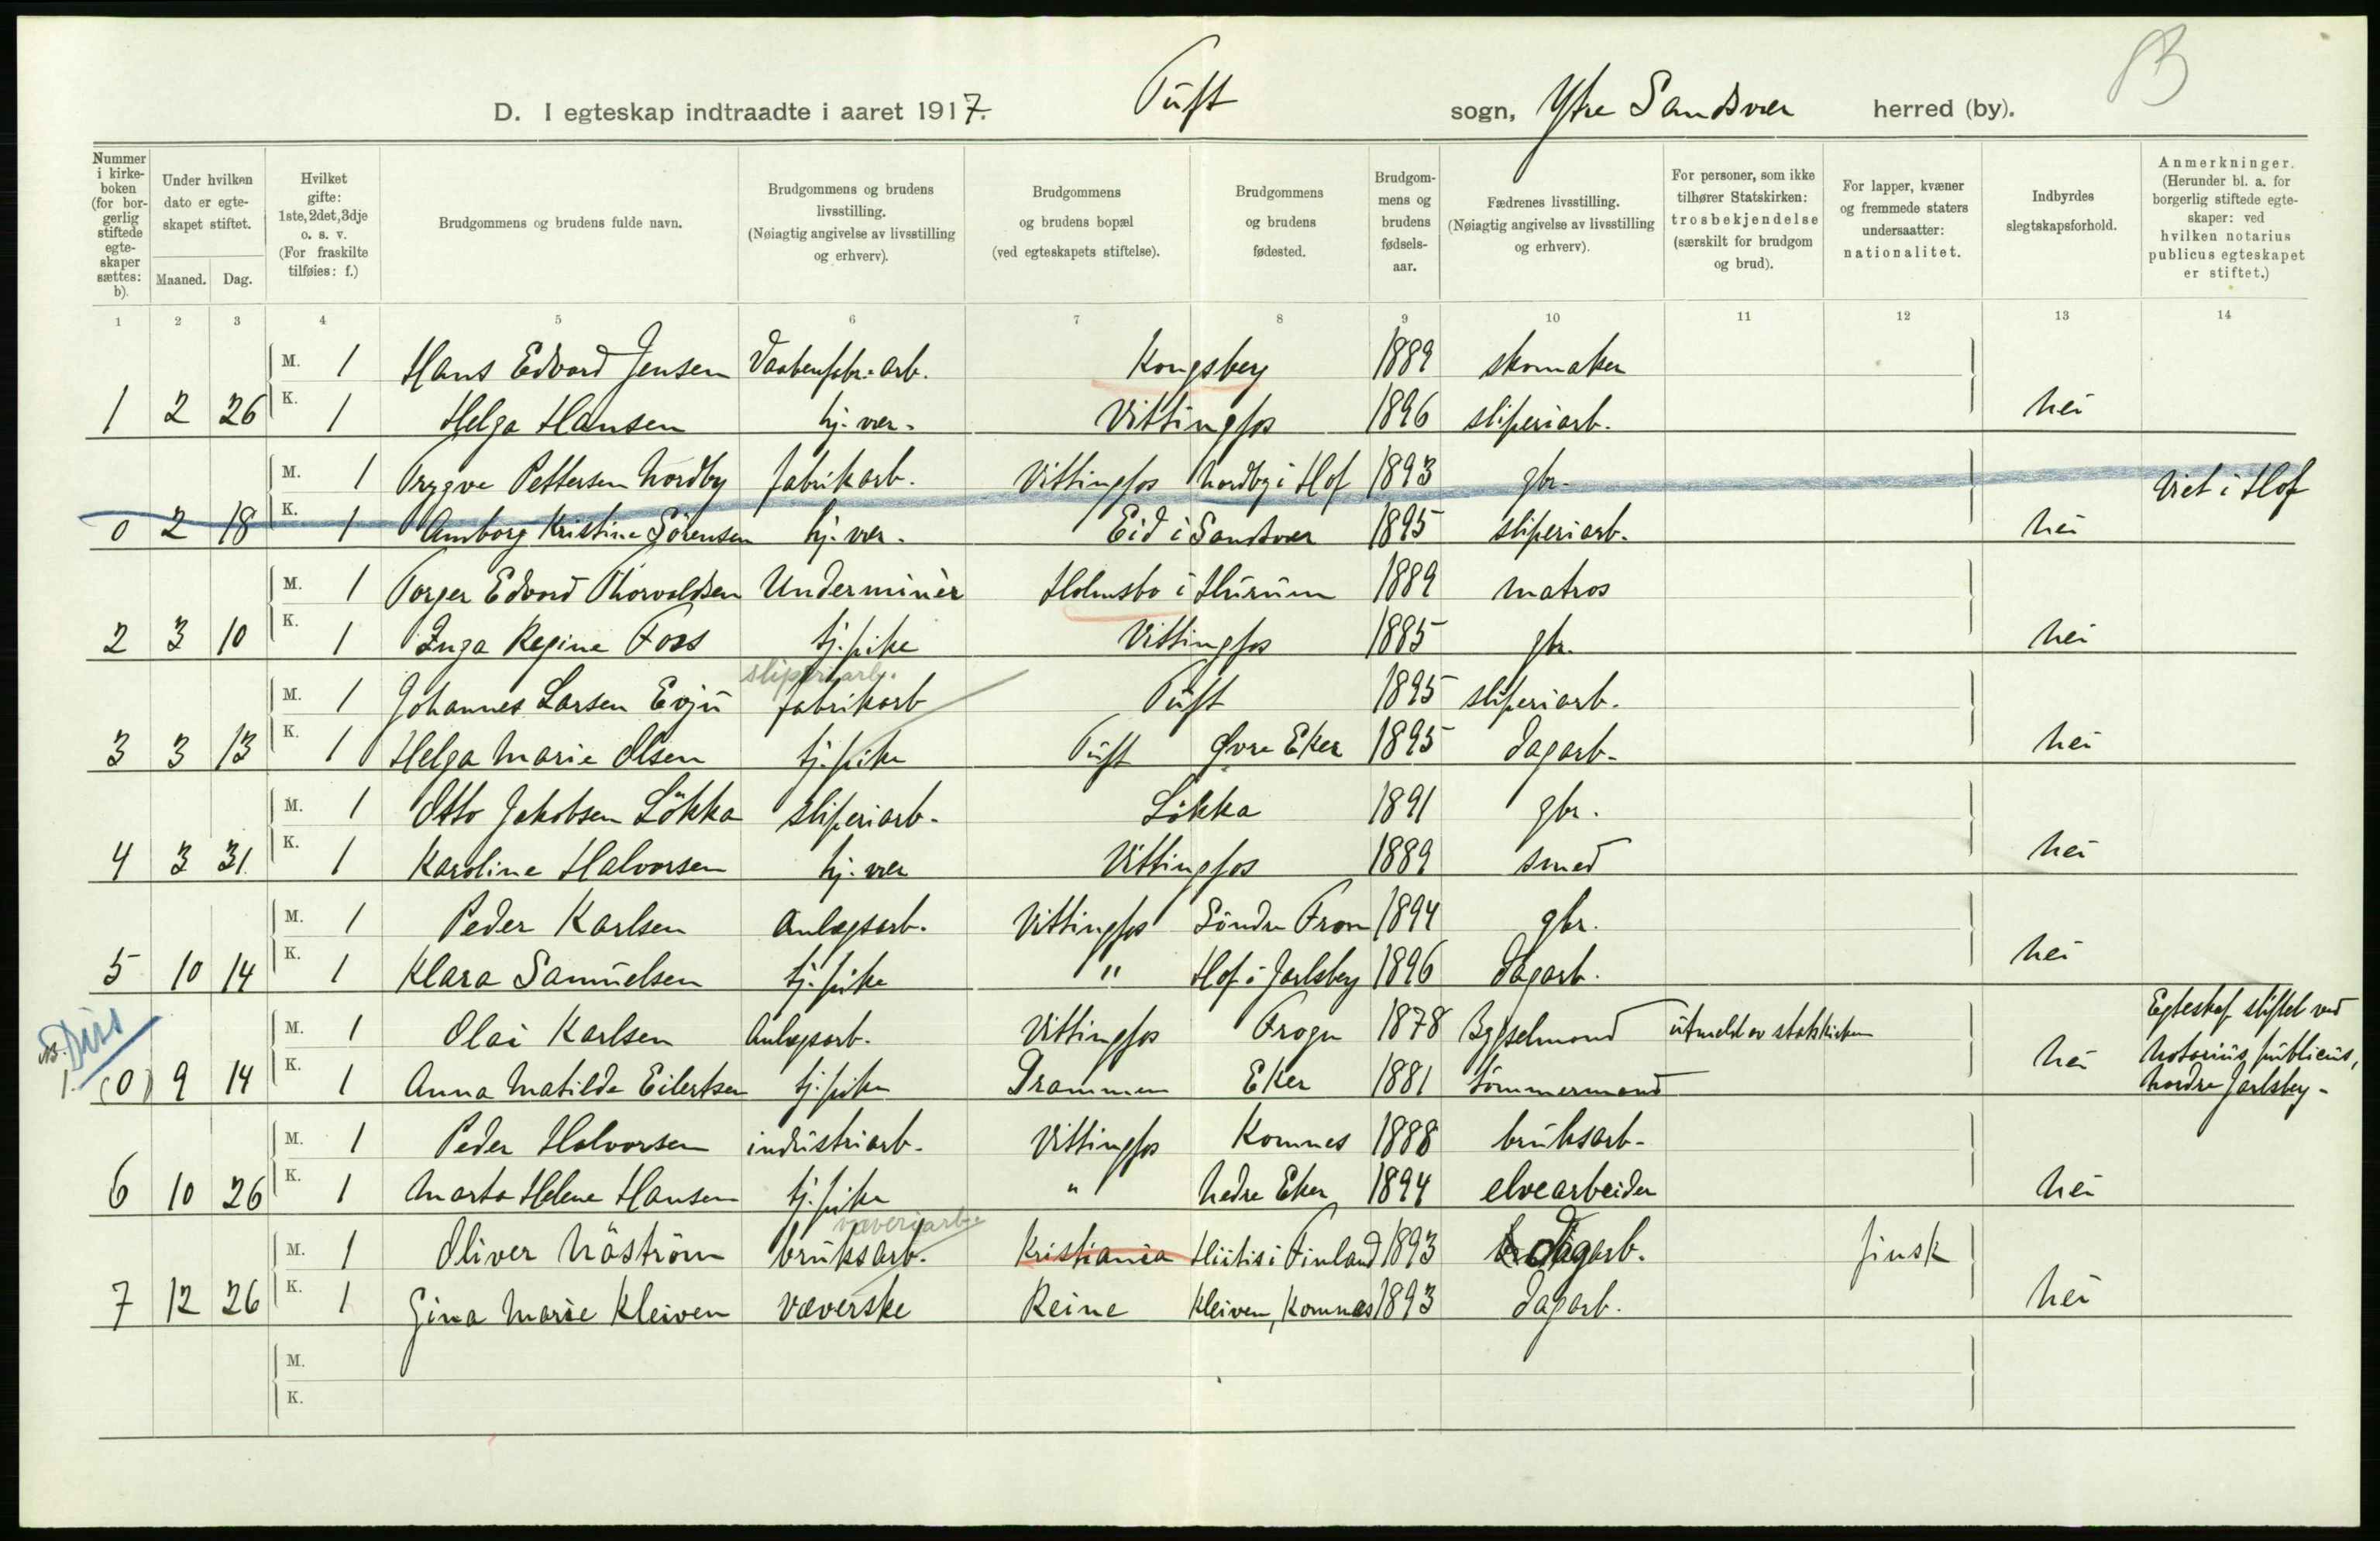 D. I egteskap indtraadte i aaret 1917. Tuft sogn, Ytre Sandsver herred (by).
Nummer i kirkeboken (for borgerlig stiftede egteskaper sættes: b).
Under hvilken dato er egteskapet stiftet. Maaned. Dag.
Hvilket gifte: 1ste, 2det, 3dje o. s. v. (For fraskilte tilføies: f.)
Brudgommens og brudens fulde navn.
Brudgommens og brudens livsstilling. (Nøiagtig angivelse av livsstilling og erhverv).
Brudgommens og brudens bopæl (ved egteskapets stiftelse).
Brudgommens og brudens fødested.
Brudgommens og brudens fødselsaar.
Fædrenes livsstilling. (Nøiagtig angivelse av livsstilling og erhverv).
For personer, som ikke tilhører Statskirken: trosbekjendelse (særskilt for brudgom og brud).
For lapper, kvæner og fremmede staters undersaatter: nationalitet.
Indbyrdes slegtskapsforhold.
Anmerkninger. (Herunder bl. a. for borgerlig stiftede egteskaper: ved hvilken notarius publicus egteskapet er stiftet.)
1 2 3 4 5 6 7 8 9 10 11 12 13 14
M. 1 Hans Edvard Jensen Vaabenfabr. arb. Kongsberg 1889 skomaker
1 2 26 K. 1 Helga Hansen hj. vær. Vittingfos 1896 sliperiarb. nei
M. 1 Trygve Pettersen Nordby fabrikarb. Vittingfos Nordby i Hof 1893 gbr. Viet i Hof
0 2 18 K. 1 Amborg Kristine Sörensen hj. vær. Eid i Sandsvær 1895 sliperiarb. nei
M. 1 Torger Edvard Thorvaldsen Underminèr Holmsbo i Hurum 1889 matros
2 3 10 K. 1 Inga Regine Foss tj. pike Vittingfos 1885 gbr. nei
sliperiarb.
M. 1 Johannes Larsen Evju fabrikarb Tuft 1895 sliperiarb.
3 3 13 K. 1 Helga Marie Olsen tj. pike Tuft Øvre Eker 1895 dagarb. nei
M. 1 Otto Jakobsen Lökka sliperiarb. Lökka 1891 gbr.
4 3 31. K. 1 Karoline Halvorsen hj. vær Vittingfos 1889 smed nei
M. 1 Peder Karlsen Anlægsarb. Vittingfos Söndre Fron 1894 gbr.
5 10 14 K. 1 Klara Samuelsen tj. pike " Hof i Jarlsberg 1896 Dagarb. nei
M. 1 Olai Karlsen Anlægsarb. Vittingfos Frogn 1878 Bygselmand utmeldt av statskirken Egteskap stiftet ved
(0) 9 14 K. 1 Anna Matilde Eilertsen tj. pike Drammen Eker 1881 tömmermand nei Notarius publicus, Nordre Jarlsberg -
M. 1 Peder Halvorsen industriarb. Vittingfos Komnes 1888 bruksarb.
6 10 26 K. 1 Marta Helene Hansen tj. pike " Nedre Eker 1894 elvearbeider nei
væveriarb.
M. 1 Oliver Näström bruksarb. Kristiania Hiitis i Finland 1893 dagarb. finsk
7 12 26 K. 1 Gina Marie Kleiven væverske Reine Kleiven, Komnes 1893 dagarb. nei
M.
K.